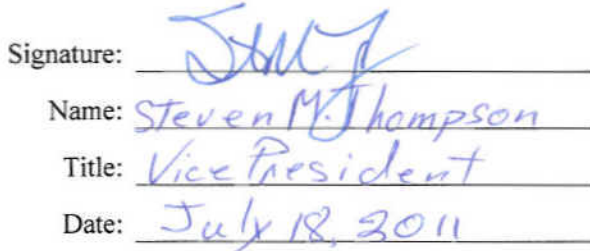 Signature:
Name: Steven M. Thompson
Title: Vice President
Date: July 18, 2011